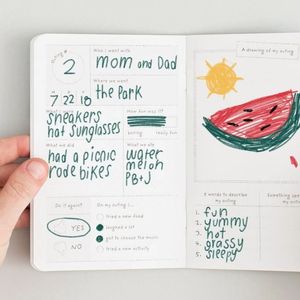 Outing #
2
Who I went with
mom and Dad
Where we went
the Park
7 22 18
sneakers
hat sunglasses
How fun was it?
boring really fun
What we did
had a picnic
rode bikes
What we ate
water
melon
PB+J
Do it again?
YES
NO
On my outing I...
tried a new food
laughed a lot
got to choose the music
tried a new activity
A drawing of my outing
5 words to describe
my outing
1. fun
2. yummy
3. hot
4. grassy
5. sleepy
Something